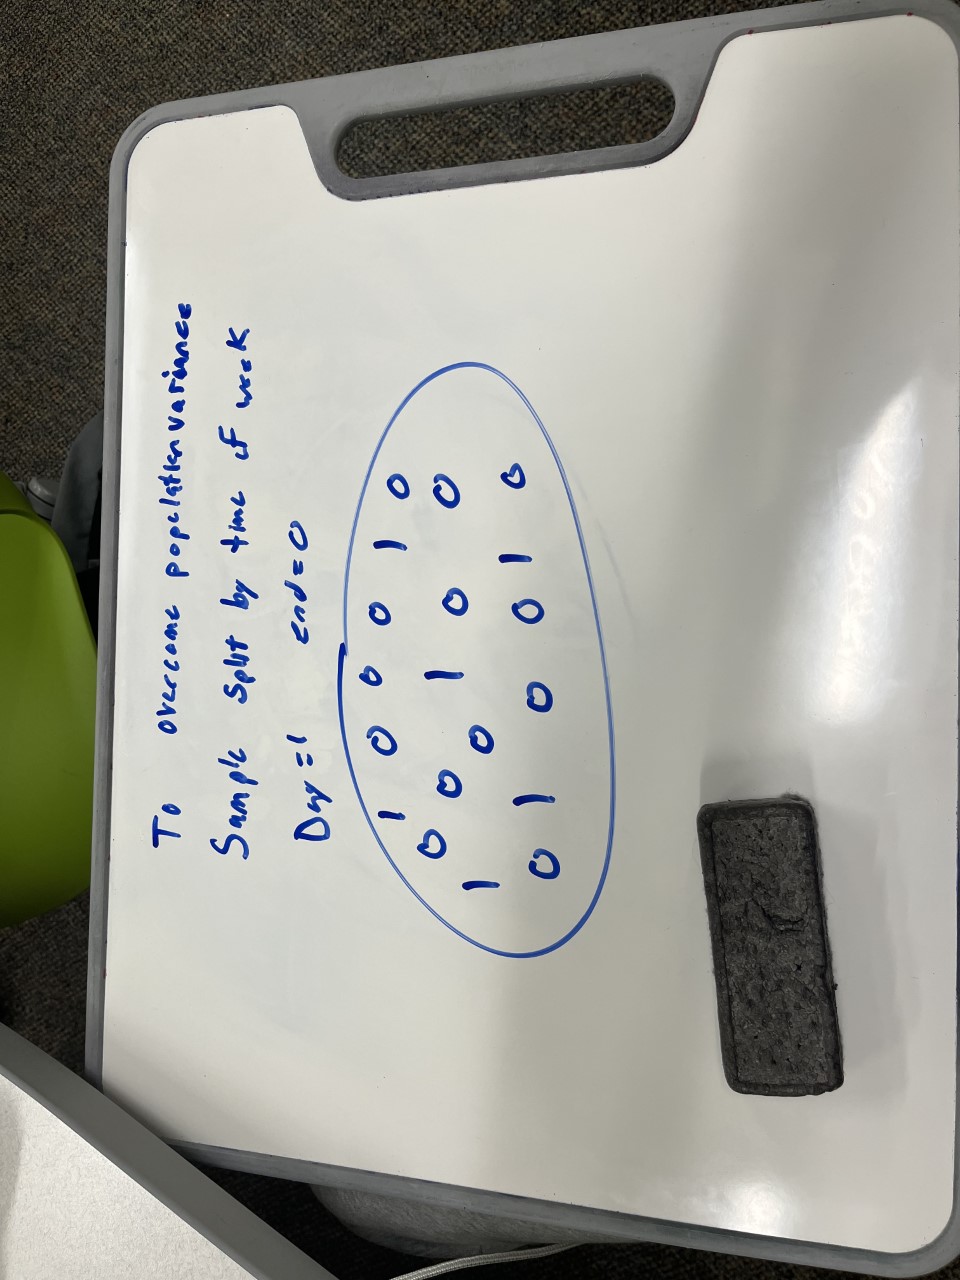 To overcome population variance
Sample split by time of week
Day =1 end=0
1 0 0 0 1 0
1 0 0 0 1 0 0
0 1 0 0 1 0